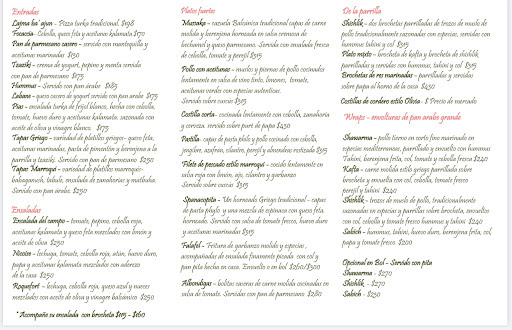 Entradas
Lajme ba' ajun - Pizza turka tradicional. $198
Focaccia- Cebolla, queso feta y aceitunas kalamata $170
Pan de parmesano casero - servido con mantequilla y
aceitunas marinadas $150
Tzaziki - crema de yogurt, pepino y menta servido
con pan de parmesano $175
Hummus - Servido con pan árabe $185
Labane - queso casero de yogurt servido con pan árabe $175
Pias - ensalada turka de frijol blanco, hecha con cebolla,
tomate, huevo duro y aceitunas kalamata. sazonada con
aceite de oliva y vinagre blanco. $175
Tapas Griego - variedad de platillos griegos - queso feta,
aceitunas marinadas, pasta de pimentón y berenjena a la
parrilla y tzaziki. Servido con pan de parmesano $250
Tapas Marroqui - variedad de platillos marroquis-
babaganush, tabule, ensalada de zanahorias y matbuha.
Servido con pan árabe. $250
Ensaladas
Ensalada del campo - tomate, pepino, cebolla roja,
aceitunas kalamata y queso feta mezclados con limón y
aceite de oliva $250
Nicoise - lechuga, tomate, cebolla roja, atún, huevo duro,
papa y aceitunas kalamata mezclados con aderezo
de la casa $250
Roquefort - lechuga, cebolla roja, queso azul y nueces
mezclados con aceite de oliva y vinagre balsamico $250
* Acompañe su ensalada con brocheta $115 - $160
Platos fuertes
Mussaka - cazuela Balcanica tradicional capas de carne
molida y berenjena horneada en salsa cremosa de
bechamel y queso parmesano. Servido con ensalada fresca
de cebolla, tomate y perejil $315
Pollo con aceitunas - muslos y piernas de pollo cocinados
lentamente en salsa de vino tinto, limones, tomate,
aceitunas verdes con especias autenticas.
Servido sobre cuscús $315
Costilla corta- cocinada lentamente con cebolla, zanahoria
y cerveza. servido sobre puré de papa $450
Pastilla- capas de pasta philo y pollo cocinado con cebolla,
jengibre, azafran, cilantro, perejil y almendras tostadas $315
Filete de pescado estilo marroquí - cocido lentamente en
salsa roja con limón, ajo, cilantro y garbanzo
Servido sobre cuscús $315
Spanacopita - Un horneado Griego tradicional - capas
de pasta phylo y una mezcla de espinacas con queso feta
horneado. Servido con salsa de tomate fresco, huevo duro
y aceitunas marinadas $315
Falafel - Fritura de garbanzo molido y especias ,
acompañadas de ensalada finamente picada con col y
pan pita hecha en casa. Envuelto o en bol $260/$300
Albondigas - bolitas caseras de carne molida cocinadas en
salsa de tomate. Servidas con pan de parmesano $280
De la parrilla
Shishlik - dos brochetas parrilladas de trozos de muslo de
pollo tradicionalmente sazonadas con especias, servidas con
hummus, tahini y col $315
Plato mixto - brocheta de kafta y brocheta de shishlik,
parrilladas y servidas con hummus, tahini y col $335
Brochetas de res marinadas - parrilladas y servidas
sobre papa al horno de la casa $450
Costillas de cordero estilo Olivia - $ Precio de mercado
Wraps - envolturas de pan arabe grande
Shawarma - pollo tierno en corte fino marinado en
especias mediterraneas, parrillado y envuelto con hummus
Tahini, berenjena frita, col, tomate y cebolla fresca $240
Kafta - carne molida estilo griega parrillada sobre
brocheta y envuelta con col, cebolla, tomate fresco
perejil y tahini $240
Shishlik - trozos de muslo de pollo, tradicionalmente
sazonadas en especias y parrillas sobre brocheta, envueltos
con col, cebolla y tomate fresco hummus y tahini $240
Sabich - hummus, tahini, huevo duro, berenjena frita, col,
papa y tomate fresco $200
Opcional en Bol - Servido con pita
Shawarma - $270
Shishlik - $270
Sabich - $250